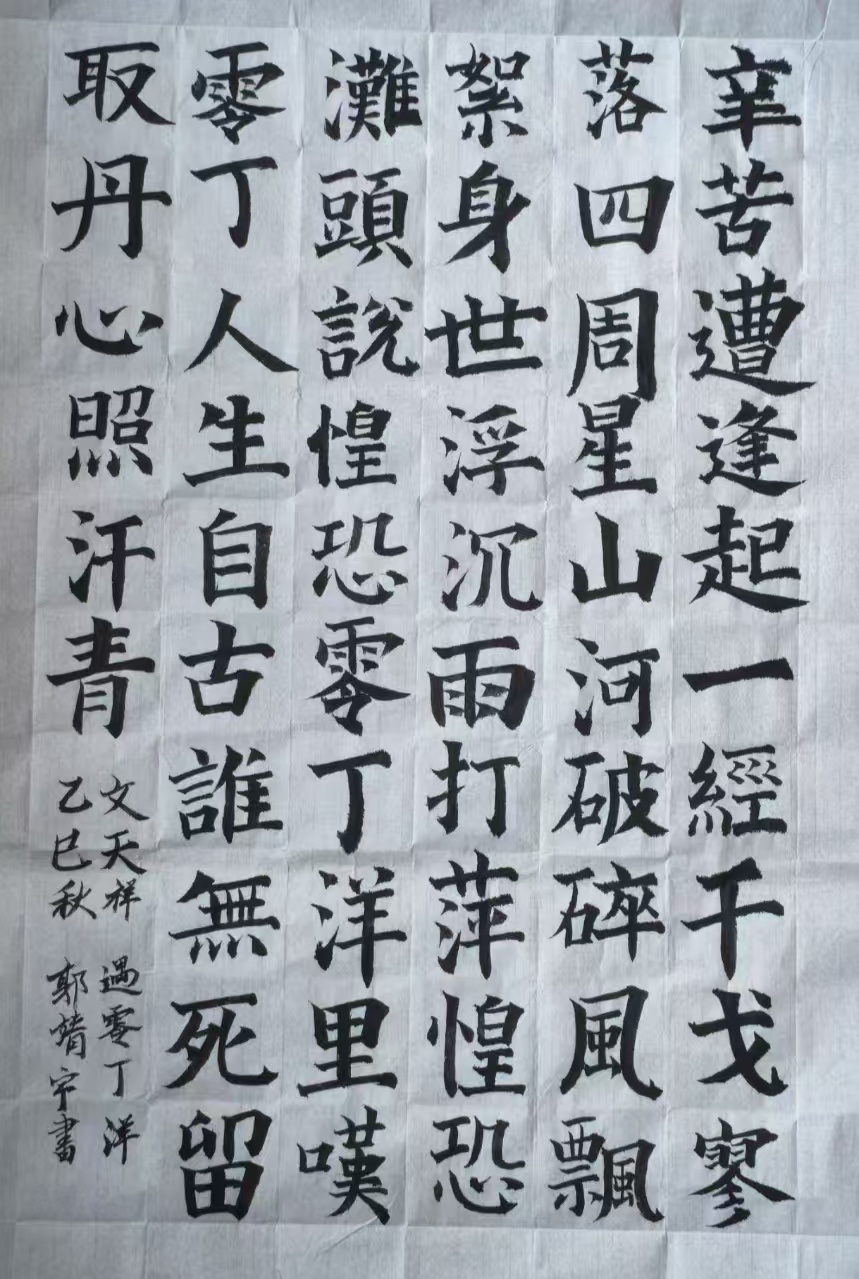 辛苦遭逢起一經干戈寥
落四周星山河破碎風飄
絮身世浮沉雨打萍惶恐
灘頭說惶恐零丁洋里嘆
零丁人生自古誰無死留
取丹心照汗青
文天祥 過零丁洋
乙巳秋 郭靖宇書